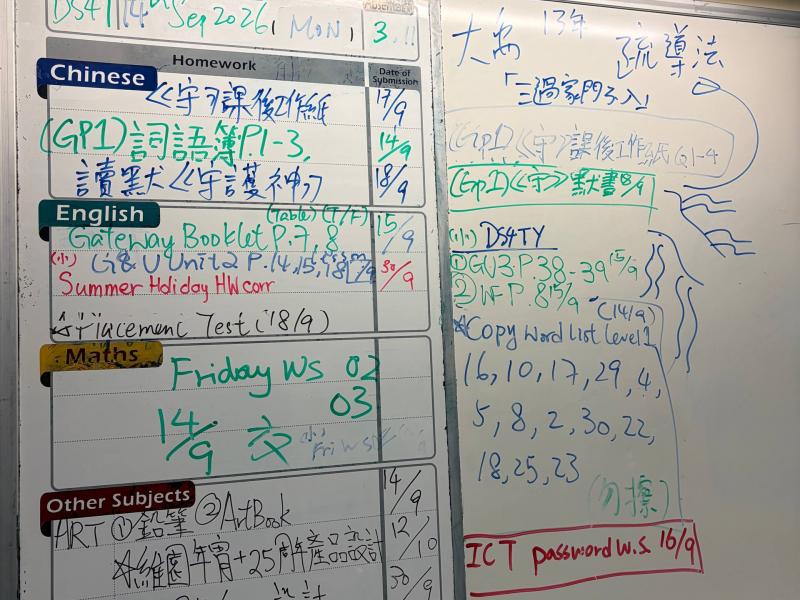 DS4T 14th Sep 2026, MON, 3!!
Homework
Date of Submission
Chinese
《守》課後工作紙 17/9
(GP1) 詞語簿P1-3, 14/9
讀默《守護神》 18/9
English
(Table) (T/F)
Gateway Booklet P.7, 8 15/9
(小) G&U Unit 2 P.14, 15,
Summer Holiday HW corr 30/9
☆Placement Test (18/9)
Maths
Friday WS 02
03
14/9 交
Other Subjects
ART ①鉛筆 ②ArtBook 14/9
☆維園年宵+25周年產品設計 12/10
30/9
大禹 13年 疏導法
「三過家門不入」
(Gp1) 《守》課後工作紙 Q1-4
(Gp1) 《守》默書 8/9
(小) DS4TY
①GU3 P.38-39 15/9
②WF P.8 15/9
(14/9)
☆Copy Word List Level 1
16, 10, 17, 29, 4,
5, 8, 2, 30, 22,
18, 25, 23
(勿擦)
ICT password w.s. 16/9